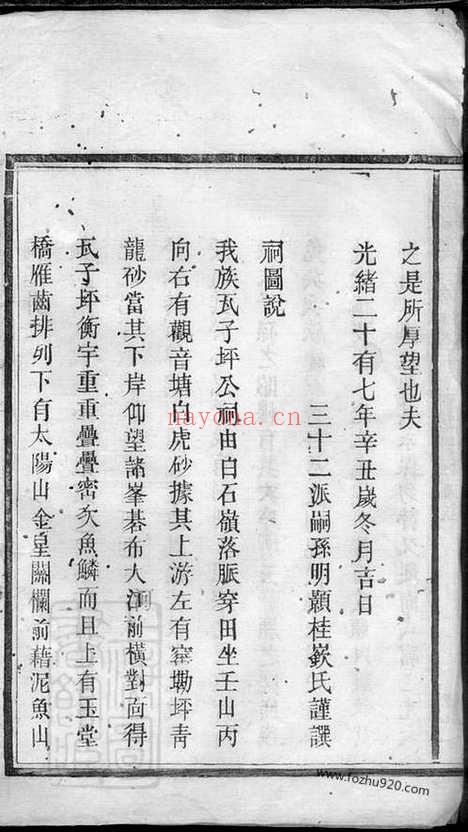 之是所厚望也夫
光緒二十有七年辛丑歲冬月吉日
三十二派嗣孫明顯桂嶔氏謹譔
祠圖說
我族瓦子坪公祠由白石嶺落脈穿田坐壬山丙
向右有觀音塘白虎砂據其上游左有窰塝坪青
龍砂當其下岸仰望諸峯碁布大江前橫對面得
瓦子坪衡宇重重疊疊密次魚鱗而且上有玉堂
橋雁齒排列下有太陽山金皇關欄前藉泥魚山
nayona.cn
www.fozhu920.com